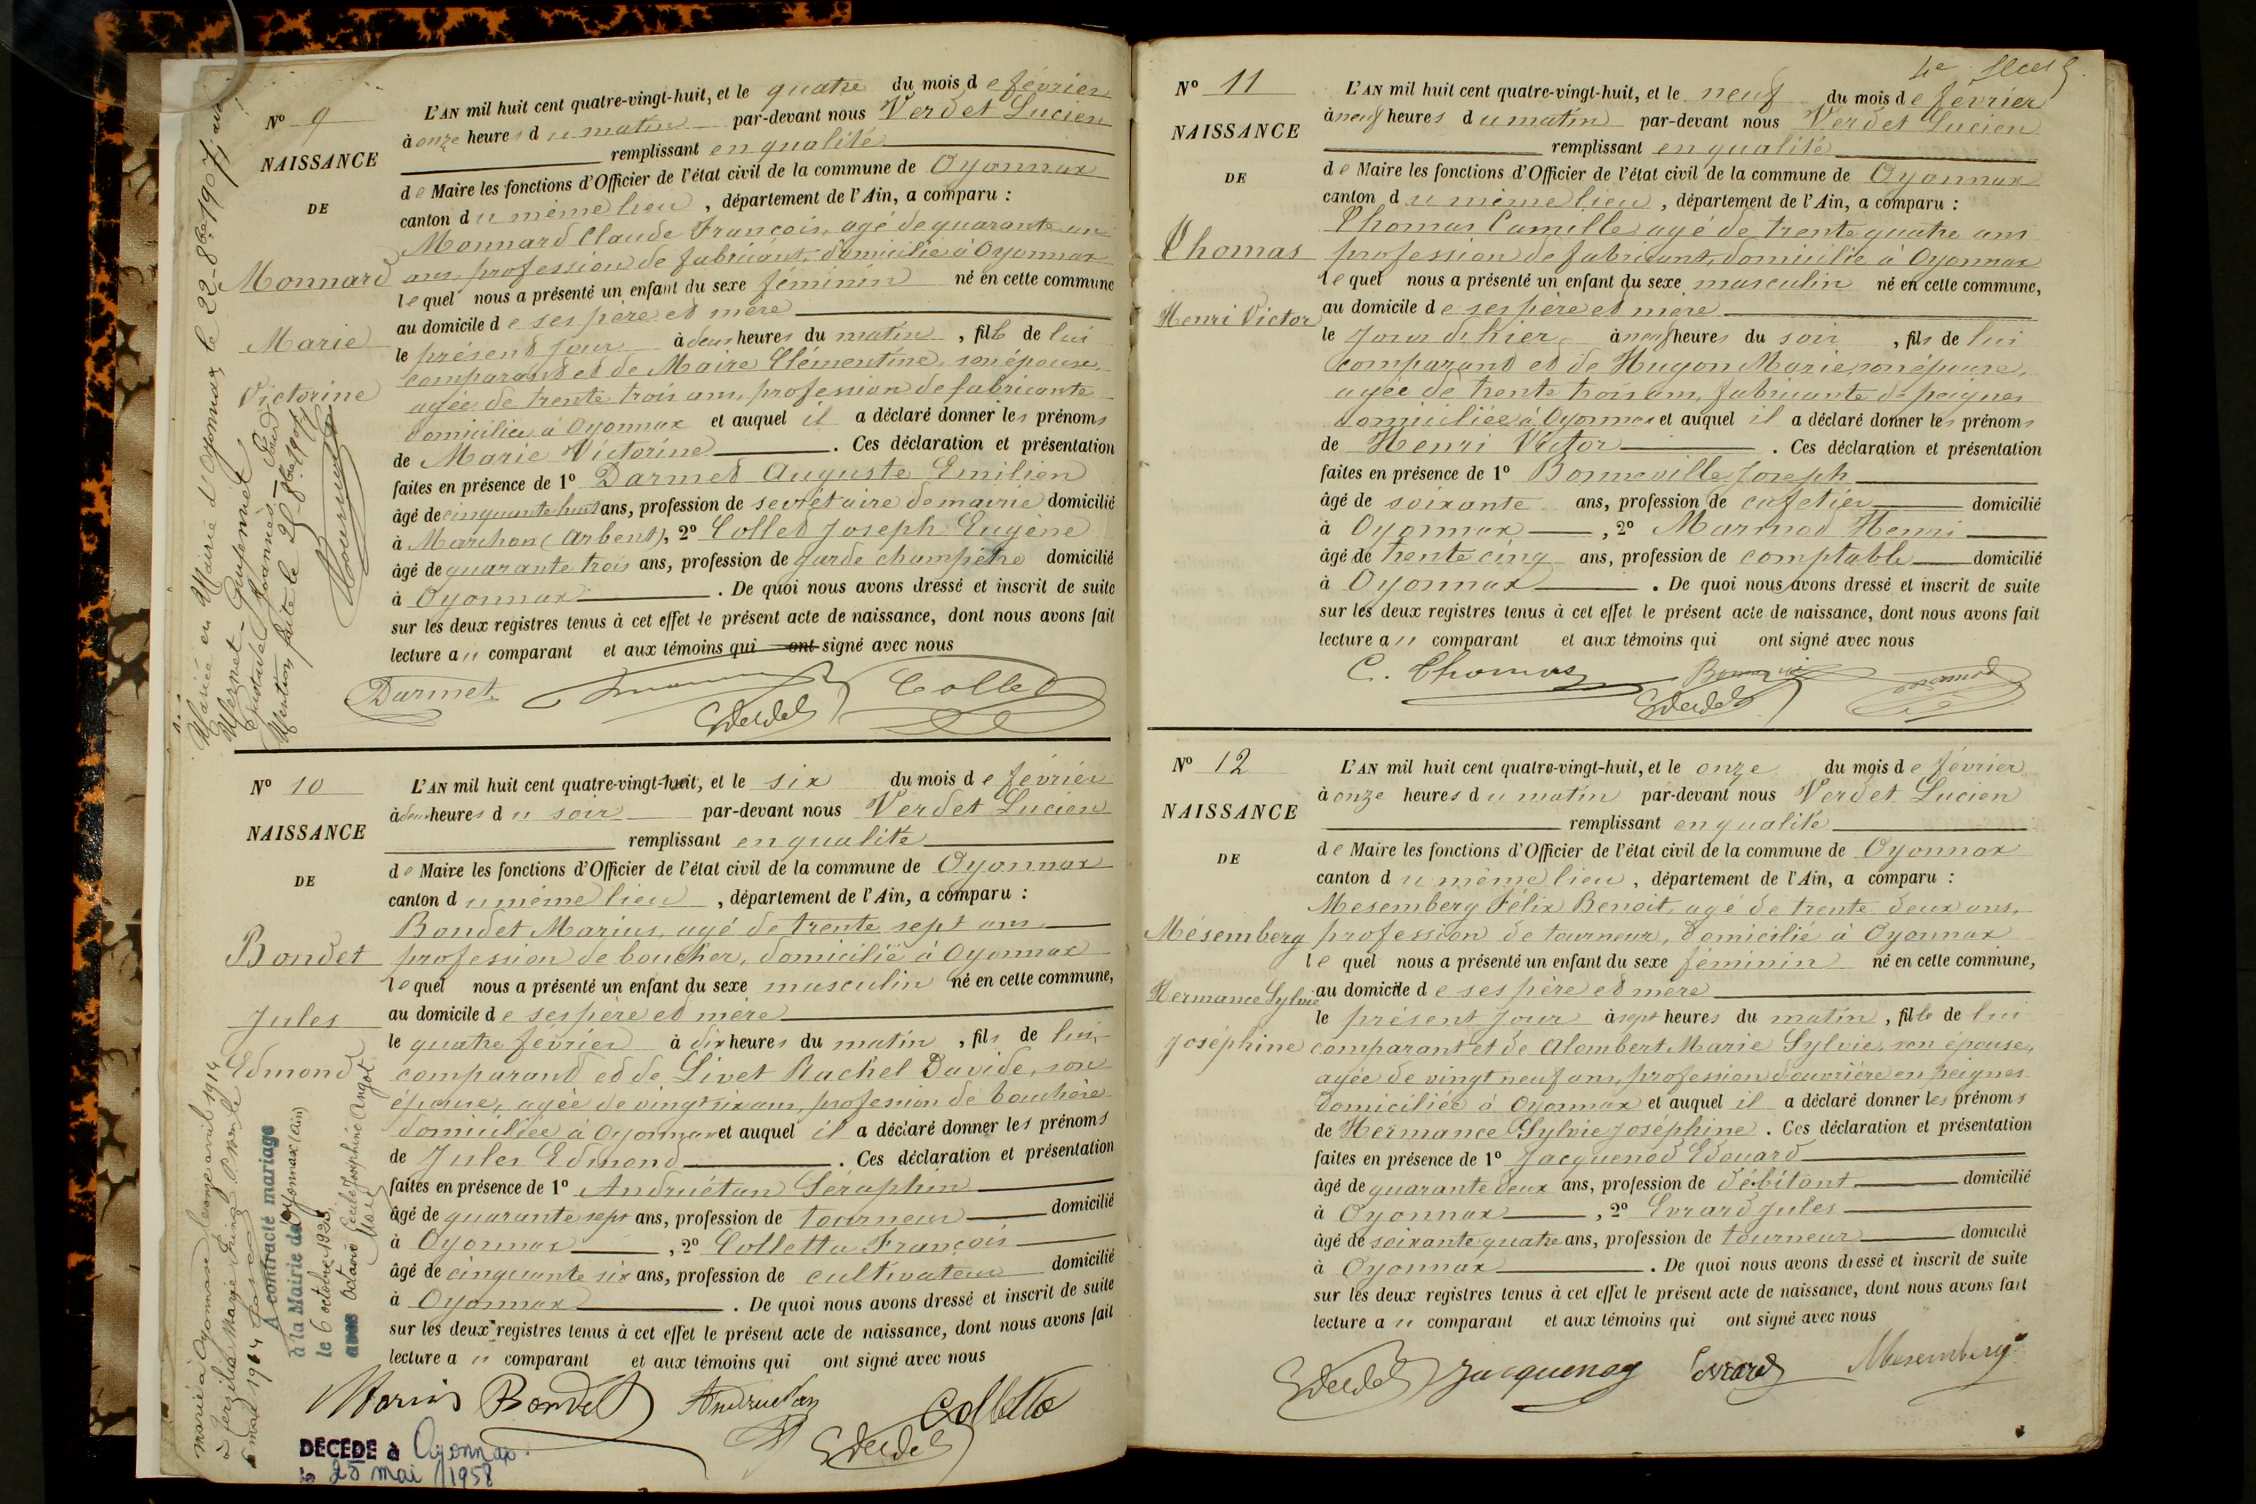 Nº 9
NAISSANCE
DE
Monnard
Marie
Victorine
Mariée en Mairie d'Oyonnax le 22 - 8bre 1907, avec
Mermet - Guyennet
Gustave Joannès
Mention faite le 25 - 8bre 1907
L'AN mil huit cent quatre-vingt-huit, et le quatre du mois de février
à onze heures du matin par-devant nous Verdet Lucien
remplissant en qualité
de Maire les fonctions d'Officier de l'état civil de la commune de Oyonnax
canton du même lieu, département de l'Ain, a comparu :
Monnard Claude François, agé de quarante un
ans, profession de fabricant, domicilié à Oyonnax
lequel nous a présenté un enfant du sexe féminin né en cette commune
au domicile de ses père et mère
le présent jour à deux heures du matin, fille de lui
comparant et de Maire Clémentine, son épouse,
agée de trente trois ans, profession de fabricante
domiciliée à Oyonnax et auquel il a déclaré donner les prénoms
de Marie Victorine . Ces déclaration et présentation
faites en présence de 1º Darmet Auguste Emilien
âgé de cinquante huit ans, profession de secrétaire de mairie domicilié
à Marchon (Arbent), 2º Collet Joseph Eugène
âgé de quarante trois ans, profession de garde champêtre domicilié
à Oyonnax . De quoi nous avons dressé et inscrit de suite
sur les deux registres tenus à cet effet le présent acte de naissance, dont nous avons fait
lecture au comparant et aux témoins qui ont signé avec nous
Darmet Collet
Verdet
Nº 10
NAISSANCE
DE
Bondet
Jules
Edmond
marié à Oyonnax le onze avril 1914
A contracté mariage
à la Mairie de Oyonnax (Ain)
le 6 octobre
avec Octavie Cécile Joséphine Angot
L'AN mil huit cent quatre-vingt-huit, et le six du mois de février
à deux heures du soir par-devant nous Verdet Lucien
remplissant en qualité
de Maire les fonctions d'Officier de l'état civil de la commune de Oyonnax
canton du même lieu, département de l'Ain, a comparu :
Bondet Marius, agé de trente sept ans
profession de boucher, domicilié à Oyonnax
lequel nous a présenté un enfant du sexe masculin né en cette commune,
au domicile de ses père et mère
le quatre février à dix heures du matin, fils de lui,
comparant et de Livet Rachel Davide, son
épouse, agée de vingt six ans, profession de bouchère
domiciliée à Oyonnax et auquel il a déclaré donner les prénoms
de Jules Edmond . Ces déclaration et présentation
faites en présence de 1º Andruétan Séraphin
âgé de quarante sept ans, profession de tourneur domicilié
à Oyonnax , 2º Colletta François
âgé de cinquante six ans, profession de cultivateur domicilié
à Oyonnax . De quoi nous avons dressé et inscrit de suite
sur les deux registres tenus à cet effet le présent acte de naissance, dont nous avons fait
lecture au comparant et aux témoins qui ont signé avec nous
Marius Bondet Andruétan Colletta
Verdet
DÉCÉDÉ à Oyonnax
le 25 mai 1958
Nº 11
NAISSANCE
DE
Thomas
Henri Victor
L'AN mil huit cent quatre-vingt-huit, et le neuf du mois de février
à neuf heures du matin par-devant nous Verdet Lucien
remplissant en qualité
de Maire les fonctions d'Officier de l'état civil de la commune de Oyonnax
canton du même lieu, département de l'Ain, a comparu :
Thomas Camille agé de trente quatre ans
profession de fabricant, domicilié à Oyonnax
lequel nous a présenté un enfant du sexe masculin né en cette commune,
au domicile de ses père et mère
le jour d'hier, à neuf heures du soir, fils de lui
comparant et de Hugon Marie, son épouse,
agée de trente trois ans, fabricante de peignes
domiciliée à Oyonnax et auquel il a déclaré donner les prénoms
de Henri Victor . Ces déclaration et présentation
faites en présence de 1º Bonneville Joseph
âgé de soixante ans, profession de cafetier domicilié
à Oyonnax , 2º Marmod Henri
âgé de trente cinq ans, profession de comptable domicilié
à Oyonnax . De quoi nous avons dressé et inscrit de suite
sur les deux registres tenus à cet effet le présent acte de naissance, dont nous avons fait
lecture au comparant et aux témoins qui ont signé avec nous
C. Thomas
Verdet
Nº 12
NAISSANCE
DE
Mésemberg
Hermance Sylvie
Joséphine
L'AN mil huit cent quatre-vingt-huit, et le onze du mois de février
à onze heures du matin par-devant nous Verdet Lucien
remplissant en qualité
de Maire les fonctions d'Officier de l'état civil de la commune de Oyonnax
canton du même lieu, département de l'Ain, a comparu :
Mesemberg Félix Benoit, agé de trente deux ans,
profession de tourneur, domicilié à Oyonnax
lequel nous a présenté un enfant du sexe féminin né en cette commune,
au domicile de ses père et mère
le présent jour à sept heures du matin, fille de lui
comparant et de Alombert Marie Sylvie, son épouse,
agée de vingt neuf ans, profession d'ouvrière en peignes
domiciliée à Oyonnax et auquel il a déclaré donner les prénoms
de Hermance Sylvie Joséphine . Ces déclaration et présentation
faites en présence de 1º Jacquenod Edouard
âgé de quarante deux ans, profession de débitant domicilié
à Oyonnax , 2º Evrard Jules
âgé de soixante quatre ans, profession de tourneur domicilié
à Oyonnax . De quoi nous avons dressé et inscrit de suite
sur les deux registres tenus à cet effet le présent acte de naissance, dont nous avons fait
lecture au comparant et aux témoins qui ont signé avec nous
Verdet Jacquenod Evrard Mesemberg